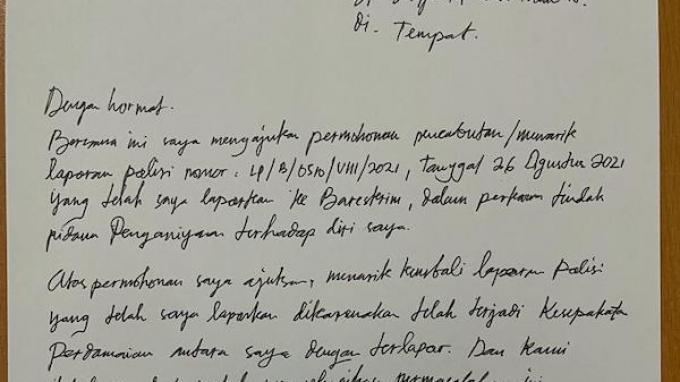 di. Tempat.
Dengan hormat.
Bersama ini saya mengajukan permohonan pencabutan/menarik
laporan polisi nomor: LP/B/0510/VIII/2021, tanggal 26 Agustus 2021
yang telah saya laporkan ke Bareskrim, dalam perkara tindak
pidana Penganiyaan terhadap diri saya.
Atas permohonan saya ajukan, menarik kembali laporan Polisi
yang telah saya laporkan dikarenakan telah terjadi Kesepakata
Perdamaian antara saya dengan terlapor. Dan kami